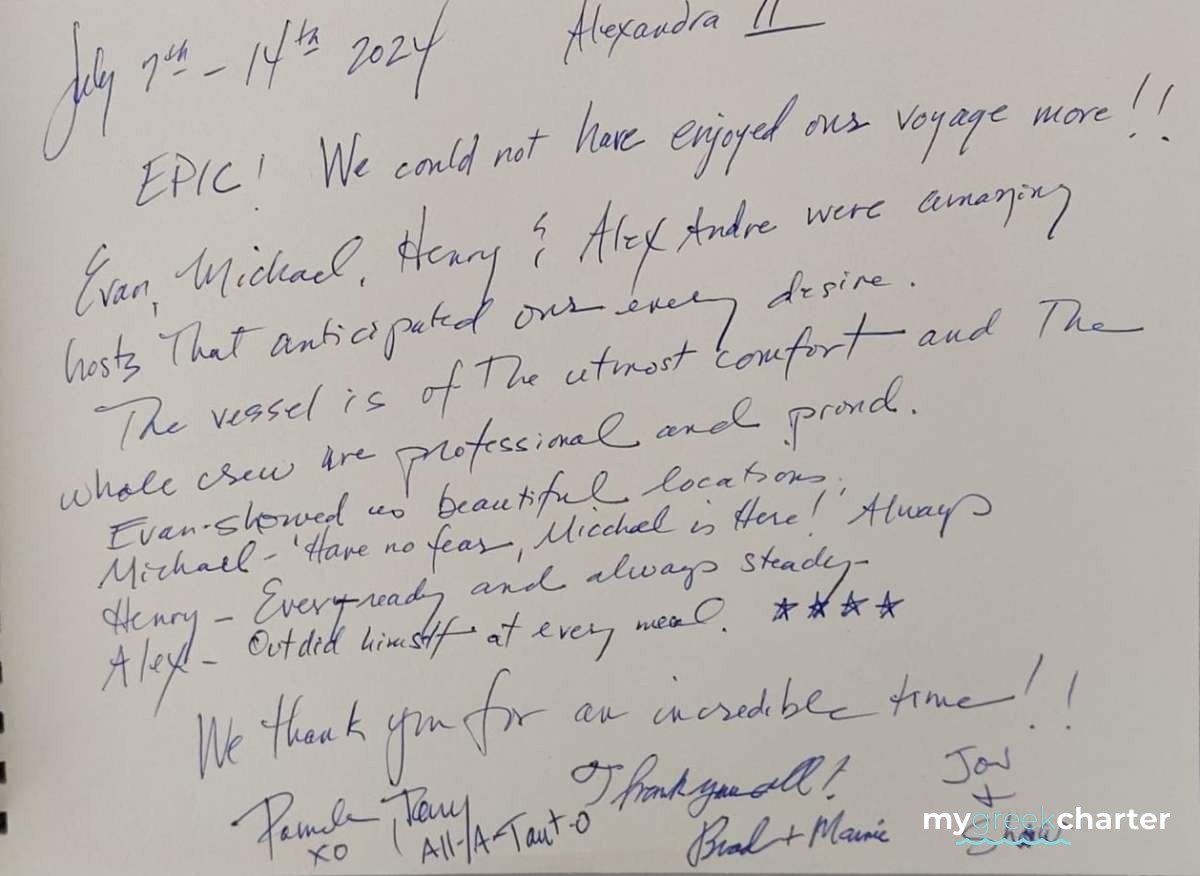 July 7th - 14th 2024 Alexandra II
EPIC! We could not have enjoyed our voyage more!!
Evan, Michael, Henry & Alex Andre were amazing
hosts That anticipated our every desire.
The vessel is of The utmost comfort and The
whole crew are professional and proud.
Evan - showed us beautiful locations.
Michael - 'Have no fear, Micchael is Here! Always
Henry - Every-ready and always steady -
Alex - Outdid himself at every meal. ★★★★
We thank you for an incredible time!!
Pamela
XO
All-/A-Taut-O
Thank you all!
Brad +
+
mygreekcharter